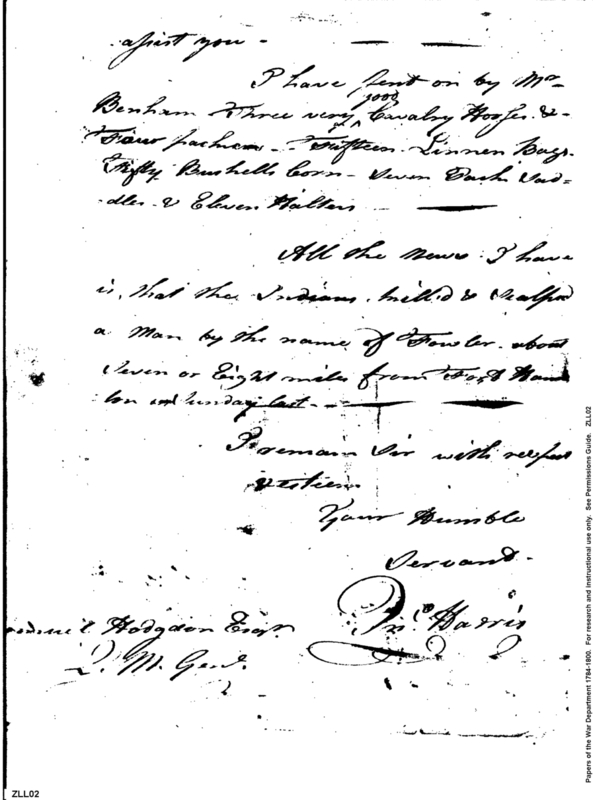 assist you -
I have sent on by Mr
Benham Three very good Cavalry Horses &
Four packers - Fifteen Linnen Bags
Fifty Bushells Corn - Seven Pack Sad=
=dles & Eleven Halters
All the News I have
is, that the Indians killed & Scalped
a Man by the name of Fowler about
Seven or Eight miles from Fort Hamil
ton on Sunday last -
I remain Sir with respect
& esteem
Your Humble
Servant -
Jno. Harris
Samuel Hodgdon Esqr.
Q. M. Genl.
ZLL02
Papers of the War Department 1784-1800. For research and instructional use only. See Permissions Guide. ZLL02